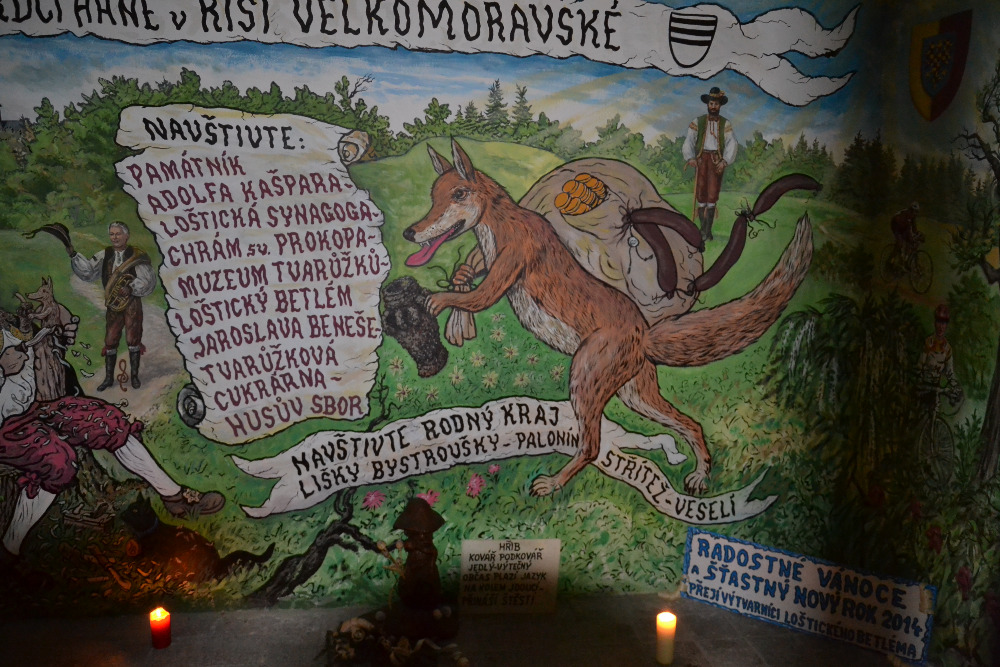 ARNĚ v ŘÍŠI VELKOMORAVSKÉ
NAVŠTIVTE:
PAMÁTNÍK
ADOLFA KAŠPARA-
LOŠTICKÁ SYNAGOGA-
CHRÁM sv. PROKOPA-
MUZEUM TVARŮŽKŮ
LOŠTICKÝ BETLÉM
JAROSLAVA BENEŠE-
TVARŮŽKOVÁ
CUKRÁRNA-
HUSŮV SBOR
NAVŠTIVTE RODNÝ KRAJ
LIŠKY BYSTROUŠKY-PALONÍN
STŘÍTEŽ-VESELÍ
HŘIB
KOVÁŘ PODKOVÁŘ
JEDLÝ-VÝTEČNÝ
OBČAS PLAZÍ JAZYK
NA KOLEM JDOUCÍ-
PŘINÁŠÍ ŠTĚSTÍ
RADOSTNÉ VÁNOCE
A ŠŤASTNÝ NOVÝ ROK 2014
PŘEJÍ VÝTVARNÍCI LOŠTICKÉHO BETLÉMA